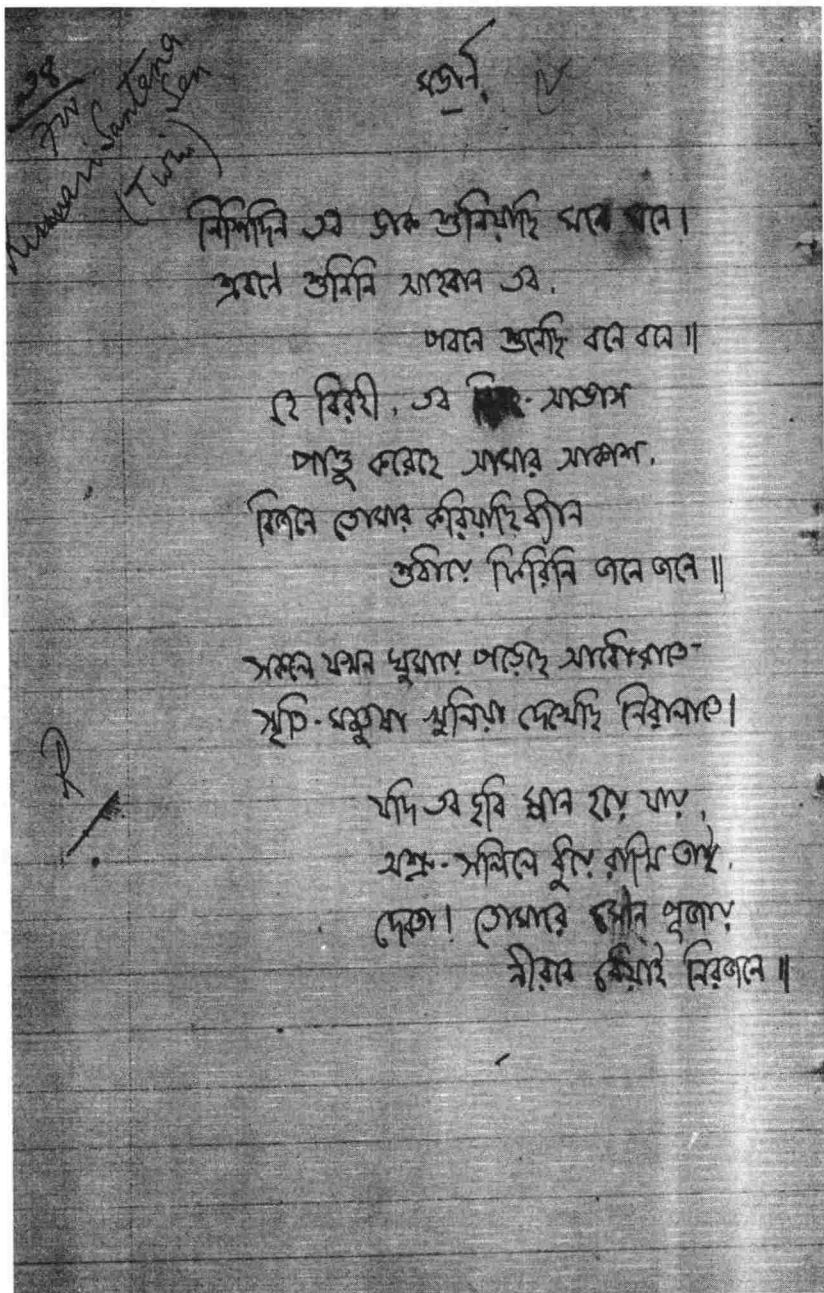 ২৪
for
Kumari Santena
Sen
(Twin)
মডার্ন
নিশিদিন তব ডাক শুনিয়াছি মনে মনে।
শ্রবণে শুনিনি আহবান তব,
পবনে শুনেছি বনে বনে॥
হে বিরহী, তব আভাস
পাণ্ডু করেছে আমার আকাশ,
বিজনে তোমার করিয়াছি ধ্যান
শুধায়ে ফিরিনি জনে জনে॥
সকলে যখন ঘুমায়ে পড়েছে আধোরাতে
স্মৃতি-মঞ্জুষা খুলিয়া দেখেছি নিরালাতে।
যদি তব ছবি ম্লান হয়ে যায়,
অশ্রু-সলিলে ধুয়ে রাখি তায়,
দেবতা! তোমারে মৌন পূজায়
নীরবে ধেয়াই নিরজনে॥
R